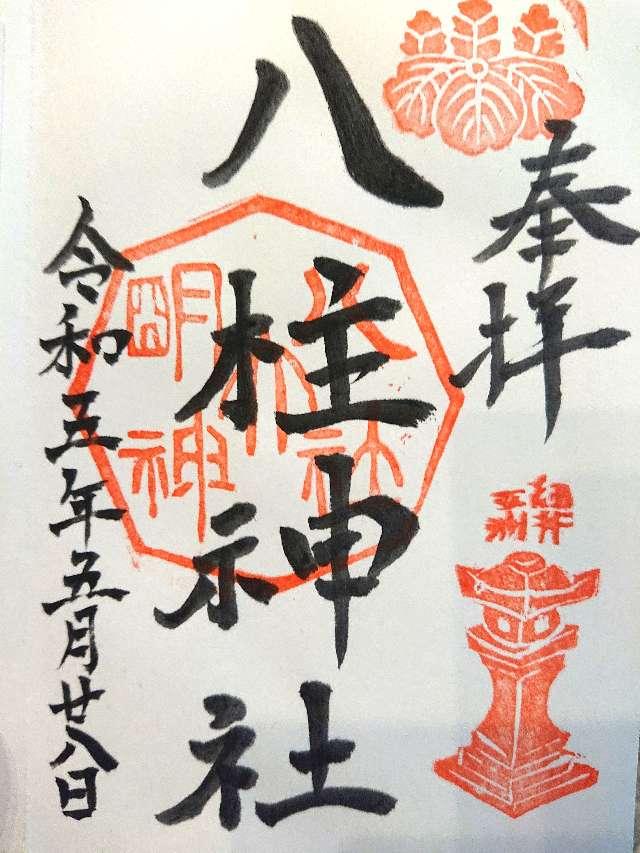 奉拝
八柱神社
八柱社
明神
令和五年五月廿八日